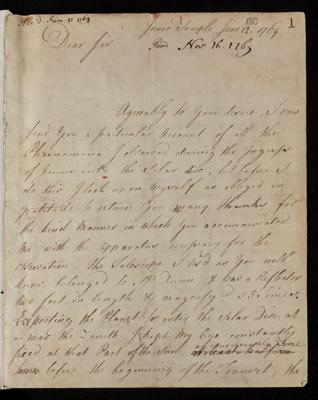 Rec'd June 15 1769
180
1
Inner Temple June 12. 1769
Dear Sir
Read Nov. 16. 1769
Agreeably to Your desire, I now
send You a particular Account of all the
Phænomena I observed during the Ingress
of Venus on the Solar disc, but before I
do this I look upon Myself as obliged in
gratitude to return You many thanks for
the kind Manner in which You accommodated
Me with the Apparatus necessary for the
observation. The Telescope I us'd as You well
know, belonged to Mr Dunn & was a Reflector
two feet in length & magnified times.
Expecting the Planet to enter the Solar Disc at
or near the Zenith I kept My Eye constantly
fixed at that Part of the Sun
before the beginning of the Transit, the